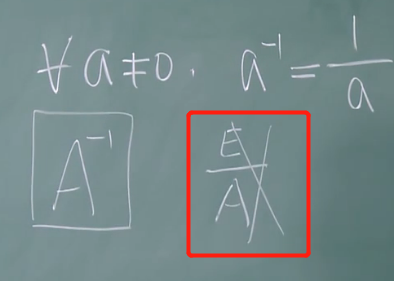 ∀ a ≠ 0. a⁻¹ = 1/a
A⁻¹ E/A